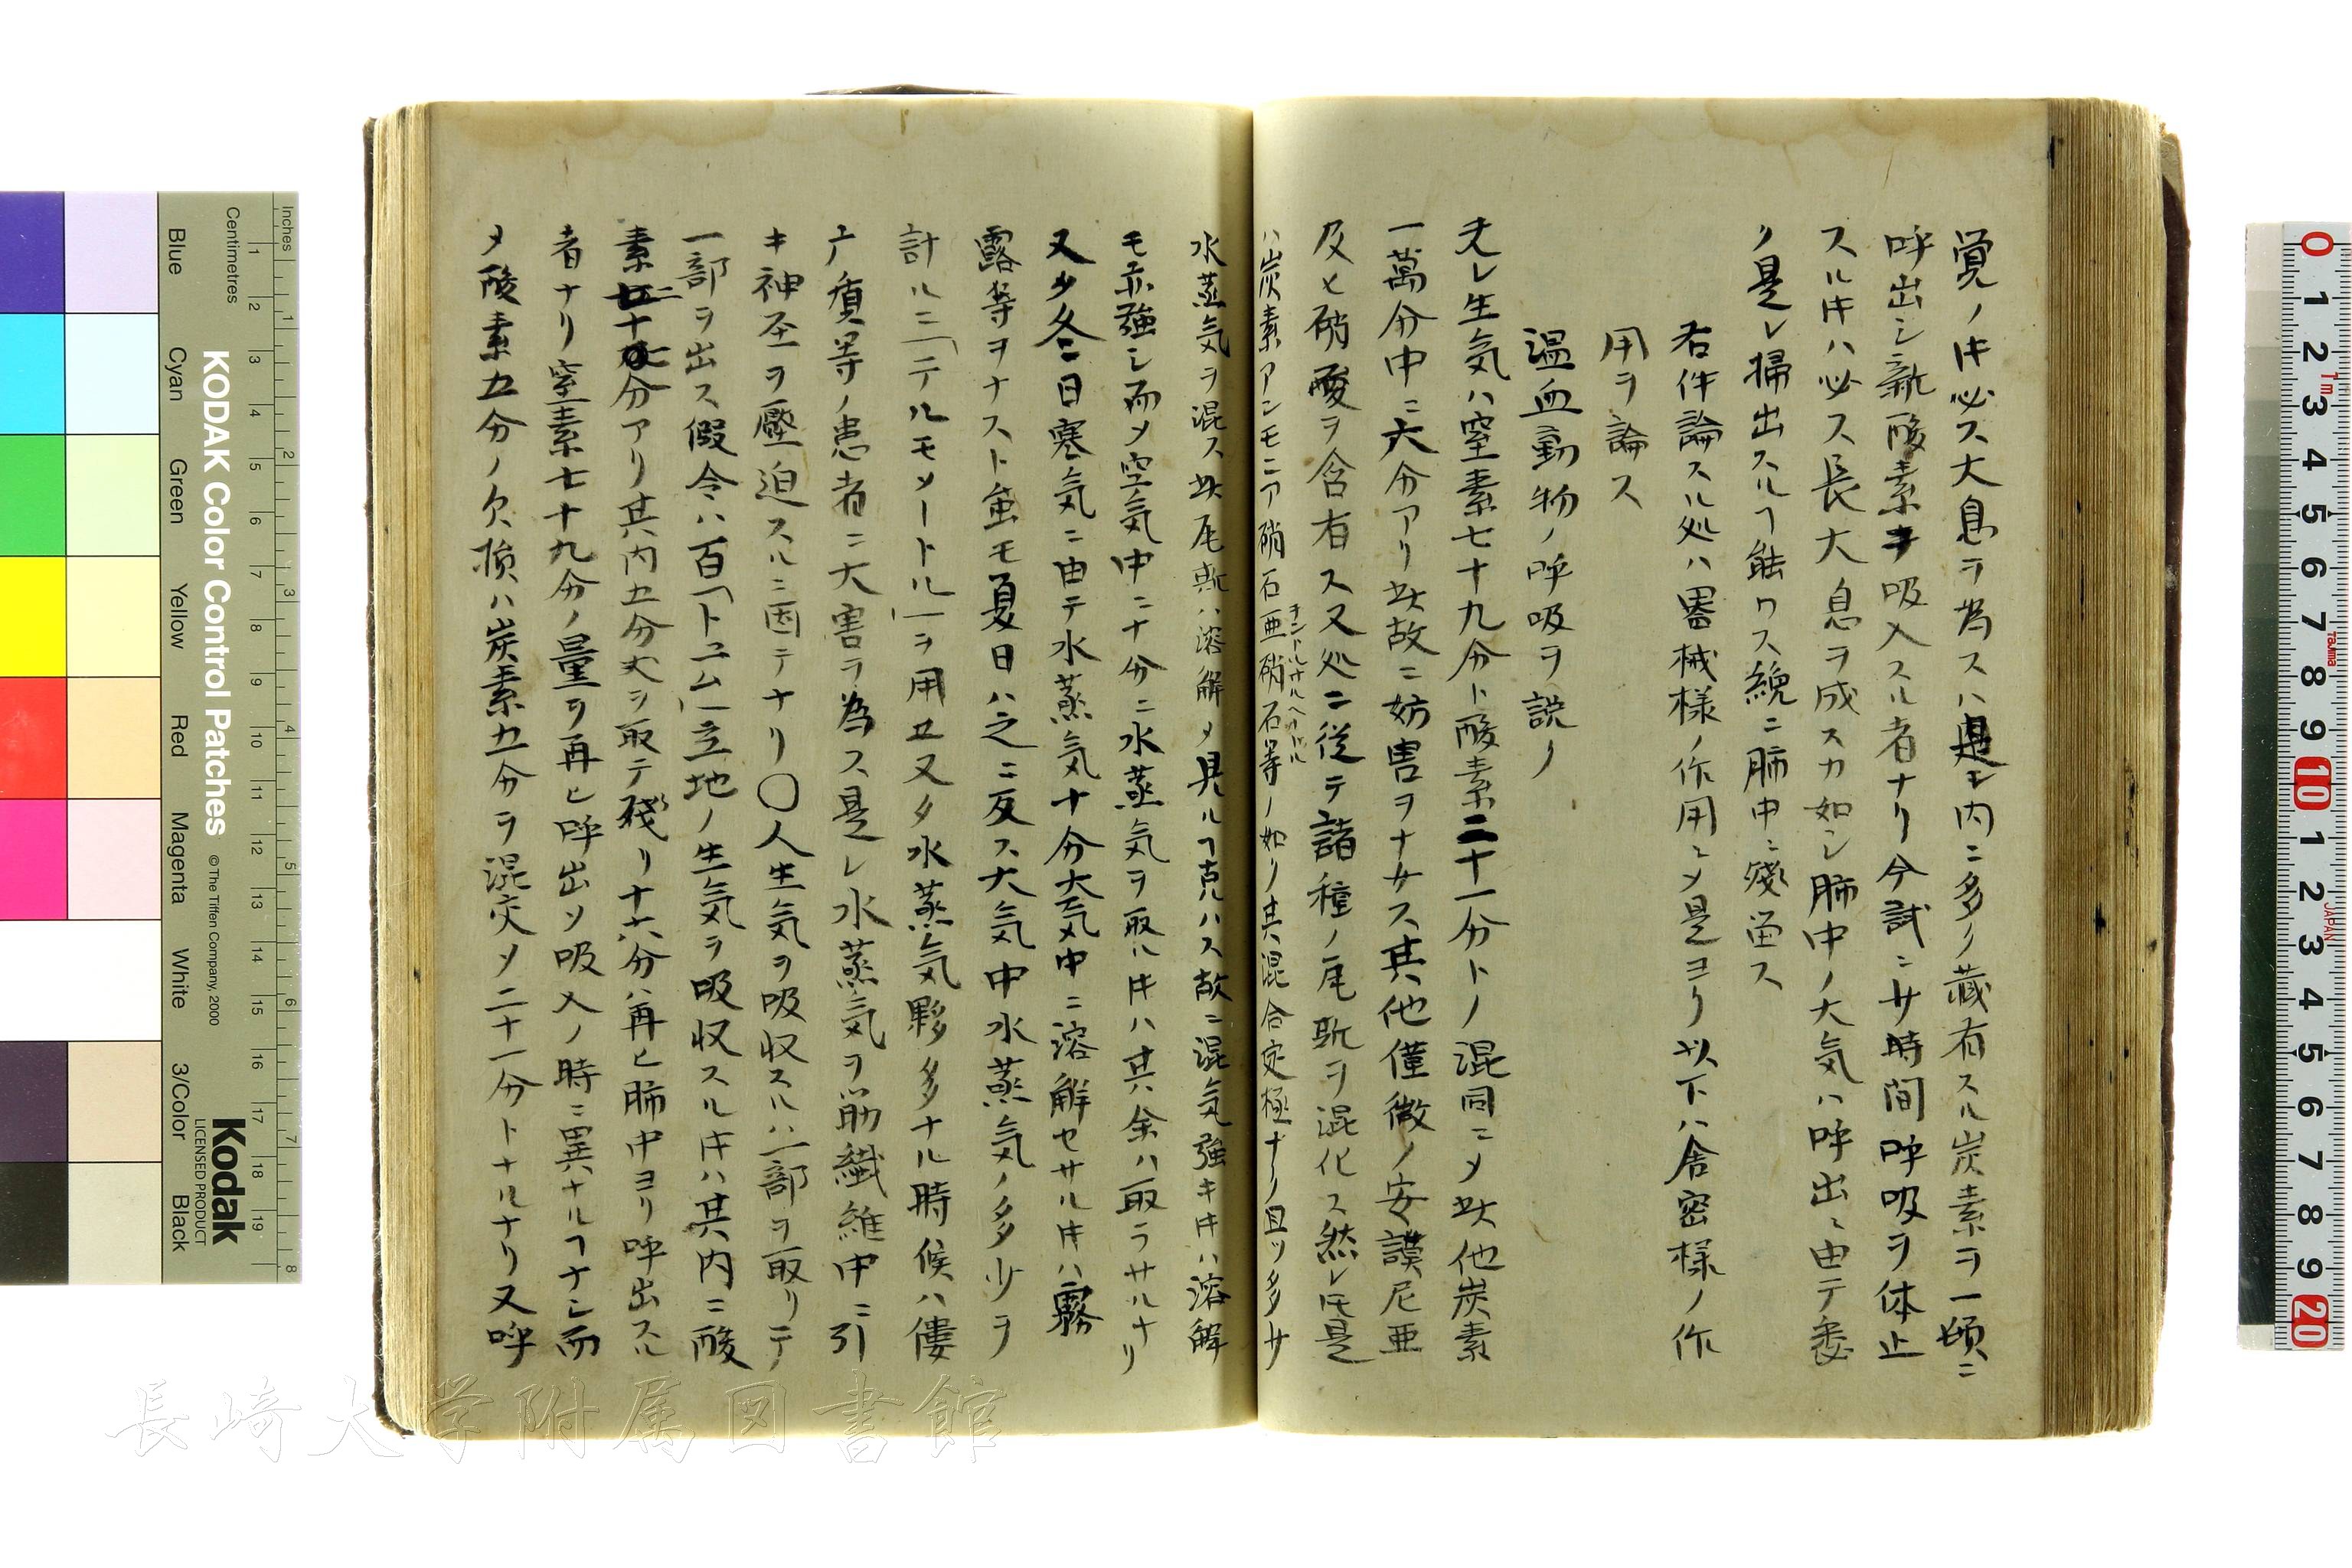 覚ノ𪜈必ス大息ヲ為スハ是レ内ニ多ク蔵有スル炭素ヲ一頃ニ
呼出シ新酸素ヲ吸入スル者ナリ今試ニサ時間呼吸ヲ休止
スル𪜈ハ必ス長大息ヲ成スカ如シ肺中ノ大気ハ呼出ニ由テ悉
ク是レ掃出スルヿ能ワス纔ニ肺中ニ残畄ス
右件論スル処ハ噐械様ノ作用ニメ是ヨリ以下ハ舎密様ノ作
用ヲ論ス
温血動物ノ呼吸ヲ説ク
夫レ生気ハ窒素七十九分ト酸素二十一分トノ混同ニメ此他炭素
一萬分中ニ六分アリ此故ニ妨害ヲナサス其他僅微ノ安謨尼亜
及ヒ硝酸ヲ含有ス又処ニ従テ諸種ノ瓦斯ヲ混化ス然レ𪜈是
ハ炭素アンモニア硝石亜硝石等ノ如ク其混合定極ナク且ツ多サ
水蒸気ヲ混ス此瓦斯ハ溶解メ見ルヿ克ハス故ニ混気強キ𪜈ハ溶解
モ亦強シ而メ空気中ニ十分ニ水蒸気ヲ取ル𪜈ハ其余ハ取ラサルナリ
又夕冬ニ日寒気ニ由テ水蒸気十分大気中ニ溶解セサル𪜈ハ霧
露等ヲナスト虽モ夏日ハ之ニ反ス大気中水蒸気ノ多少ヲ
計ルニ「テルモメートル」ヲ用ユ又タ水蒸気夥多ナル時候ハ僂
广瘡等ノ患者ニ大害ヲ為ス是レ水蒸気ヲ筋繊維中ニ引
キ神圣ヲ壓迫スルニ因テナリ〇人生気ヲ吸収スルハ一部ヲ取リテ
一部ヲ出ス假令ハ百「トユム」立地ノ生気ヲ吸収スル𪜈ハ其内ニ酸
素二十一分アリ其内五分丈ヲ取テ残リ十六分ハ再ヒ肺中ヨリ呼出スル
者ナリ窒素七十九分ノ量ヲ再ヒ呼出ソ吸入ノ時ニ異ナルヿナシ而
メ酸素五分ノ欠損ハ炭素五分ヲ混交メ二十一分トナルナリ又呼
KODAK Color Control Patches
© The Tiffen Company, 2000
Kodak
LICENSED PRODUCT
Inches
Centimetres
Blue
Cyan
Green
Yellow
Red
Magenta
White
3/Color
Black
長崎大学附属図書館